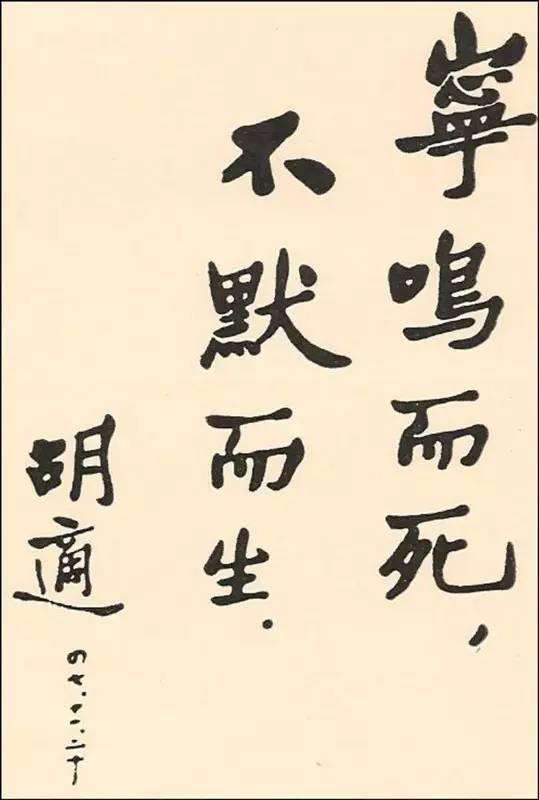 寧鳴而死，
不默而生．
胡適
四七．十一．二十